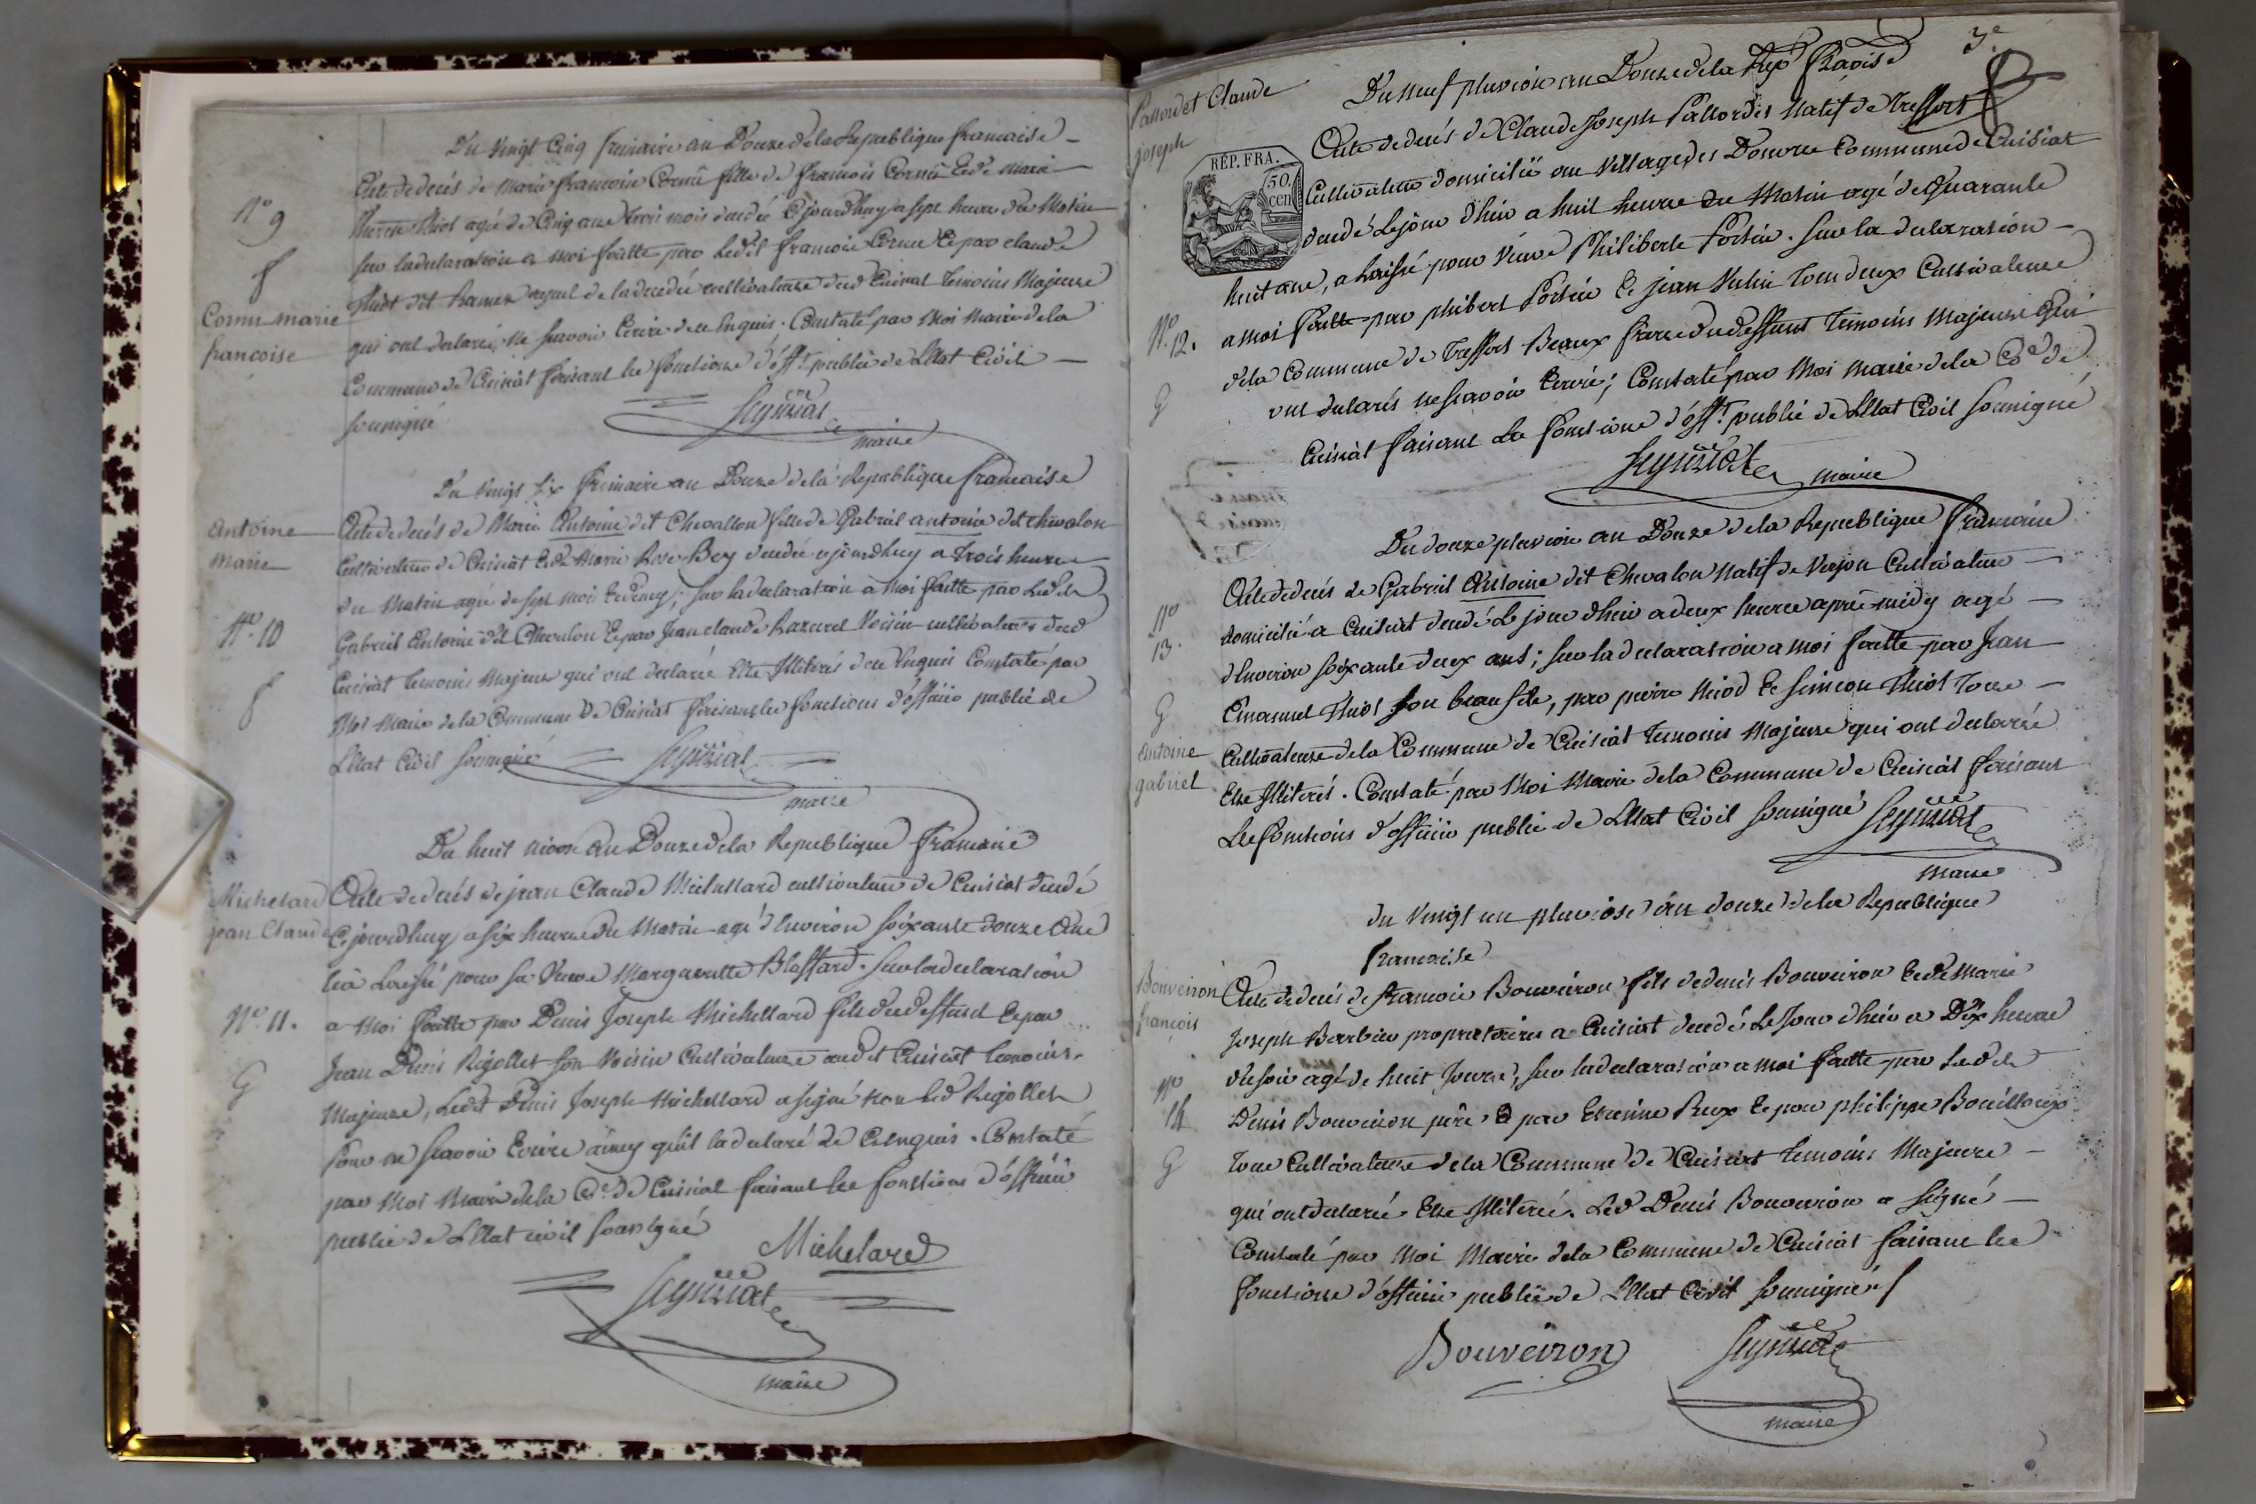 Du Vingt Cinq frimaire an Douze de la Republique francaise
N° 9
Acte de decés de Marie francoise Cornu fille de francois Cornu Et de marie
agé de Cinq ans trois mois decedée Cejourdhuy a sept heures du Matin
f
sur la declaration a moi faitte par Ledit francois Cornu Et par claude
Cornu marie
francoise
de la decedée cultivateurs dud Cuisiat Temoins Majeurs
qui ont declarés ne savoir Ecrire de ce Enquis. Constaté par Moi Maire de la
Commune de Cuisiat faisant les fonctions d'off.r public de L'Etat Civil
sousigné
maire
Du Vingt six frimaire an Douze de la Republique francaise
Antoine
Marie
Acte de decés de Marie Antoine dit Chevallon fille de Gabriel antoine dit chevalon
Cultivateur de Cuisiat Et de Marie Rose Bey decedée cejourdhuy a trois heures
du Matin agée de sept mois Et demy; sur la declaration a Moi faitte par Led.
N° 10
Gabriel Antoine dit Chevalon Et par Jean claude Voisin cultivateurs dud
f
Cuisiat temoins Majeurs qui ont declarés Etre Illiterés de ce Enquis Constaté par
Moi Maire de la Commune de Cuisiat faisant les fonctions d'officier public de
L'Etat Civil sousigné
maire
Du huit nivose an Douze de la Republique francaise
Michelard
jean Claude
Acte de decés de jean Claude Michellard cultivateur de Cuisiat decedé
Cejourdhuy a six heures du Matin agé d'Environ soixante douze Ans
Marguerite Blaffard. sur la declaration
N° 11.
a Moi faitte par Denis Joseph Michellard fils du deffunt Et par
G
Jean Denis Rigollet son Voisin Cultivateurs audit Cuisiat temoins
Majeurs, Ledit Denis Joseph Michellard a signé non Led Rigollet
pour ne scavoir Ecrire ainsy qu'il la declaré de Ce Enquis. Constaté
par Moi Maire de la C.ne de Cuisiat faisant les fonctions d'officier
public de L'Etat civil sousigné
Michelard
maire
3e
Du Neuf pluviose an Douze de la Rep francaise
Claude
joseph
RÉP. FRA.
50.
cen
Acte de decés de Claude Joseph Natif de Treffort
Cultivateur domicilié au Village des Commune de Cuisiat
decedé Lejour d'hier a huit heures du Matin agé de Quarante
huit ans, a Laissé pour Veuve Philiberte. sur la declaration
N° 12.
a Moi faitte par phibert Et jean Tous deux Cultivateurs
de la Commune de Treffort Beaux freres du deffunt Temoins Majeurs Qui
G
ont declarés ne scavoir Ecrire; Constaté par Moi maire de la C.ne de
Cuisiat faisant Les fonctions d'off.r public de L'Etat Civil sousigné
maire
Du douze pluviose an Douze de la Republique francaise
N°
13.
Acte de decés de Gabriel Antoine dit Chevalon Natif de Verjon Cultivateur
domicilié a Cuisiat decedé Lejour d'hier a deux heures après midy agé
d'Environ soixante deux ans; sur la declaration a moi faitte par Jean
G
Emanuel son beau fils, par pierre Et Simeon Tous
Antoine
gabriel
Cultivateurs de la Commune de Cuisiat Temoins Majeurs qui ont declarés
Etre Illiterés. Constaté par Moi Maire de la Commune de Cuisiat faisant
Les fonctions d'officier public de L'Etat Civil sousigné
maire
du Vingt un pluviose an douze de la Republique
francaise
Bouveiron
francois
Acte de decés de francois Bouveiron fils de denis Bouveiron Et de Marie
Joseph proprietaires a Cuisiat decedé Lejour d'hier a Dix heures
N°
14
du soir agé de huit Jours, sur la declaration a moi faitte par Led
Denis Bouveiron père Et par Etienne Et par philippe
G
Tous Cultivateurs de la Commune de Cuisiat Temoins Majeurs
qui ont declarés Etre Illiterés. Led Denis Bouveiron a signé
Constaté par Moi Maire de la Commune de Cuisiat faisant les
fonctions d'officier public de L'Etat Civil sousigné
Bouveiron
maire